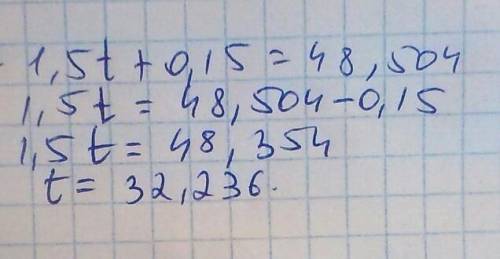 1,5t + 0,15 = 48,504
1,5t = 48,504 - 0,15
1,5t = 48,354
t = 32,236.